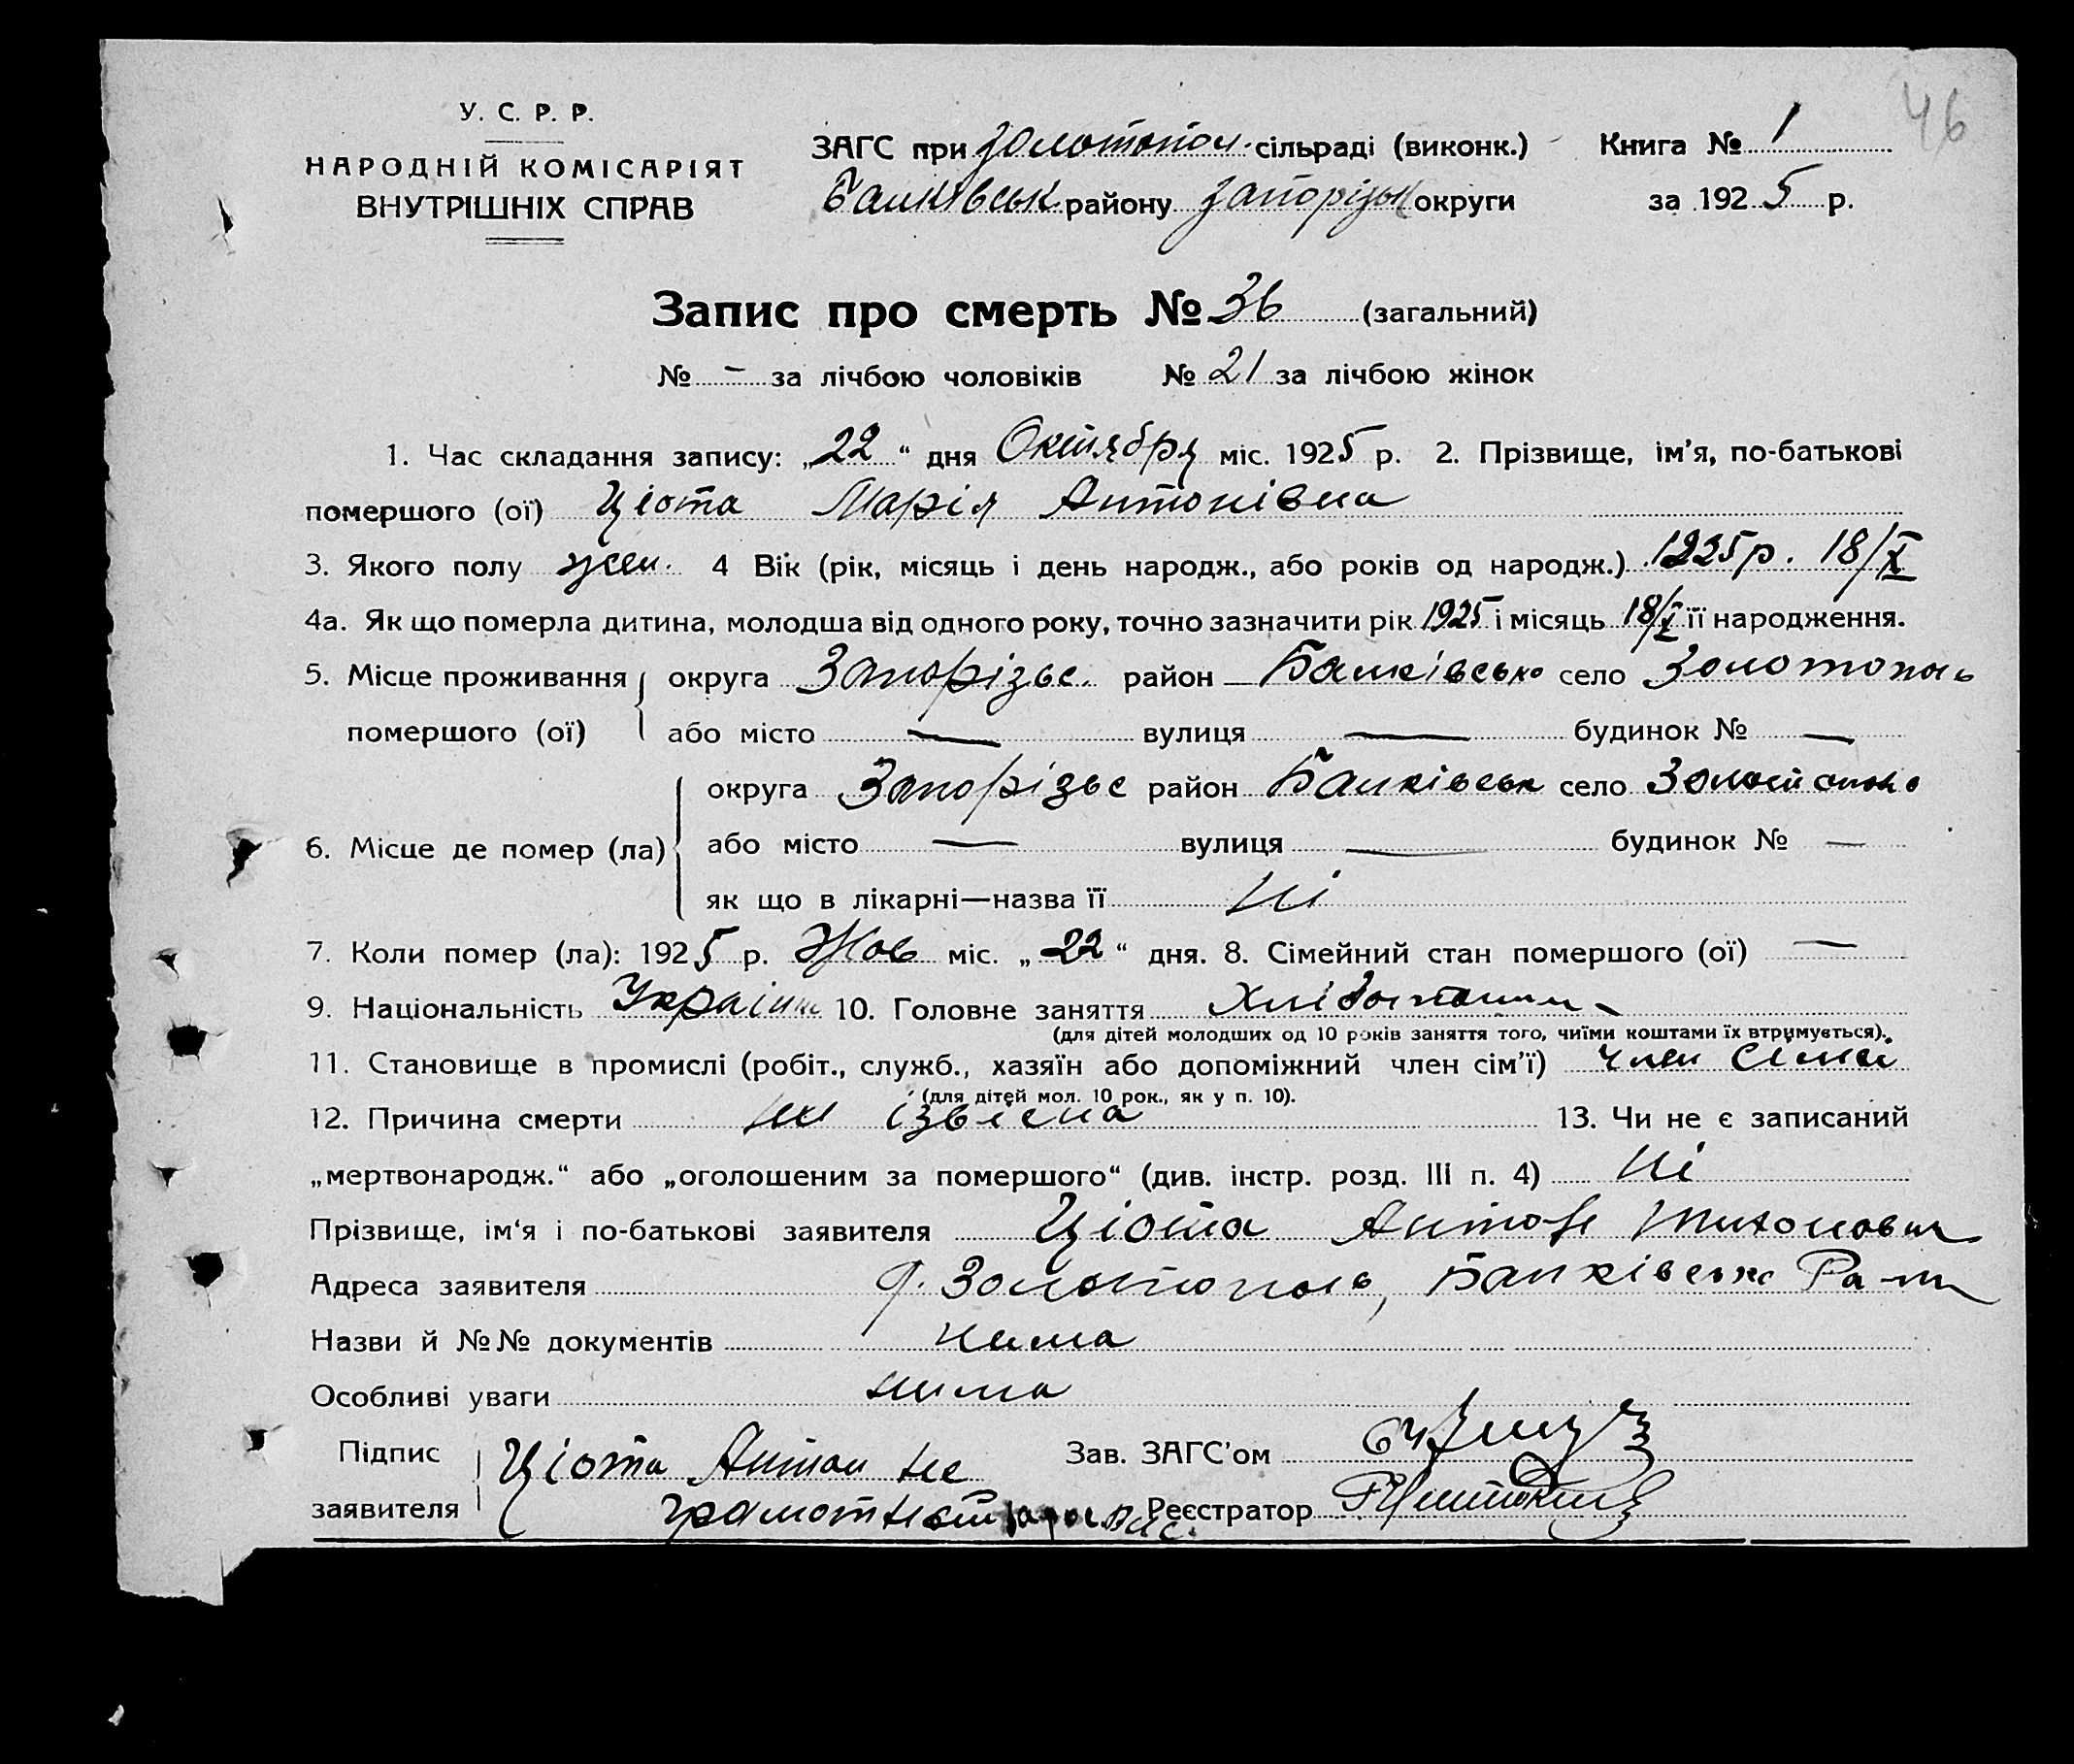 46
У. С. Р. Р.
НАРОДНІЙ КОМІСАРІЯТ
ВНУТРІШНІХ СПРАВ
ЗАГС при Золотопол. сільраді (виконк.) Книга № 1
Балківськ. району Запорізьк округи за 1925 р.
Запис про смерть № 36 (загальний)
№ - за лічбою чоловіків № 21 за лічбою жінок
1. Час складання запису: „22“ дня Октября міс. 1925 р. 2. Прізвище, ім’я, по-батькові
помершого (ої) Ціота Марія Антонівна
3. Якого полу жен. 4 Вік (рік, місяць і день народж., або років од народж.) 1925р. 18/X
4а. Як що померла дитина, молодша від одного року, точно зазначити рік 1925 і місяць 18/X її народження.
5. Місце проживання округа Запорізьс. район Балківсько село Золотополь
помершого (ої) або місто — вулиця — будинок № —
6. Місце де помер (ла) округа Запорізьс район Балківськ село
або місто — вулиця — будинок № —
як що в лікарні—назва її Ні
7. Коли помер (ла): 1925 р. Жов міс. „22“ дня. 8. Сімейний стан помершого (ої) —
9. Національність Україн 10. Головне заняття
(для дітей молодших од 10 років заняття того, чиїми коштами їх втримується).
11. Становище в промислі (робіт., служб., хазяїн або допоміжний член сім’ї) член сімі
(для дітей мол. 10 рок., як у п. 10).
12. Причина смерти не ізвісна 13. Чи не є записаний
„мертвонародж.“ або „оголошеним за помершого“ (див. інстр. розд. III п. 4) Ні
Прізвище, ім‘я і по-батькові заявителя Ціота Антон Тихонович
Адреса заявителя Золотополь, Балківсько Ра-ну
Назви й №№ документів нима
Особливі уваги нима
Підпис Ціота Антон не Зав. ЗАГС’ом
заявителя грамотный Реєстратор